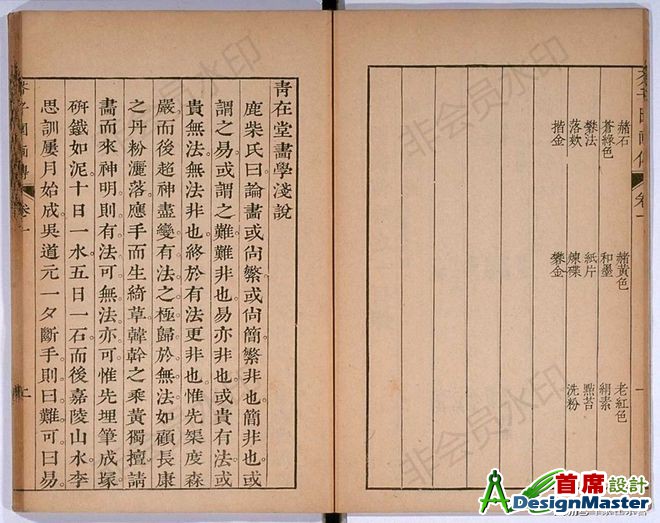 赭石 赭黃色 老紅色
蒼綠色 和墨 絹素
礬法 紙片 點苔
落欵 煉碟 洗粉
揩金 礬金
青在堂畫學淺說
鹿柴氏曰論畫或尚繁或尚簡繁非也簡非也或
謂之易或謂之難難非也易亦非也或貴有法或
貴無法無法非也終於有法更非也惟先榘度森
嚴而後超神盡變有法之極歸於無法如顧長康
之丹粉灑落應手而生綺草韓幹之乘黃獨擅請
畫而來神明則有法可無法亦可惟先埋筆成塚
研鐵如泥十日一水五日一石而後嘉陵山水李
思訓屢月始成吳道元一夕斷手則曰難可曰易
芥子園畫傳 卷一
非会员水印
非会员水印
非会员水印
非会员水印
首席設計
DesignMaster